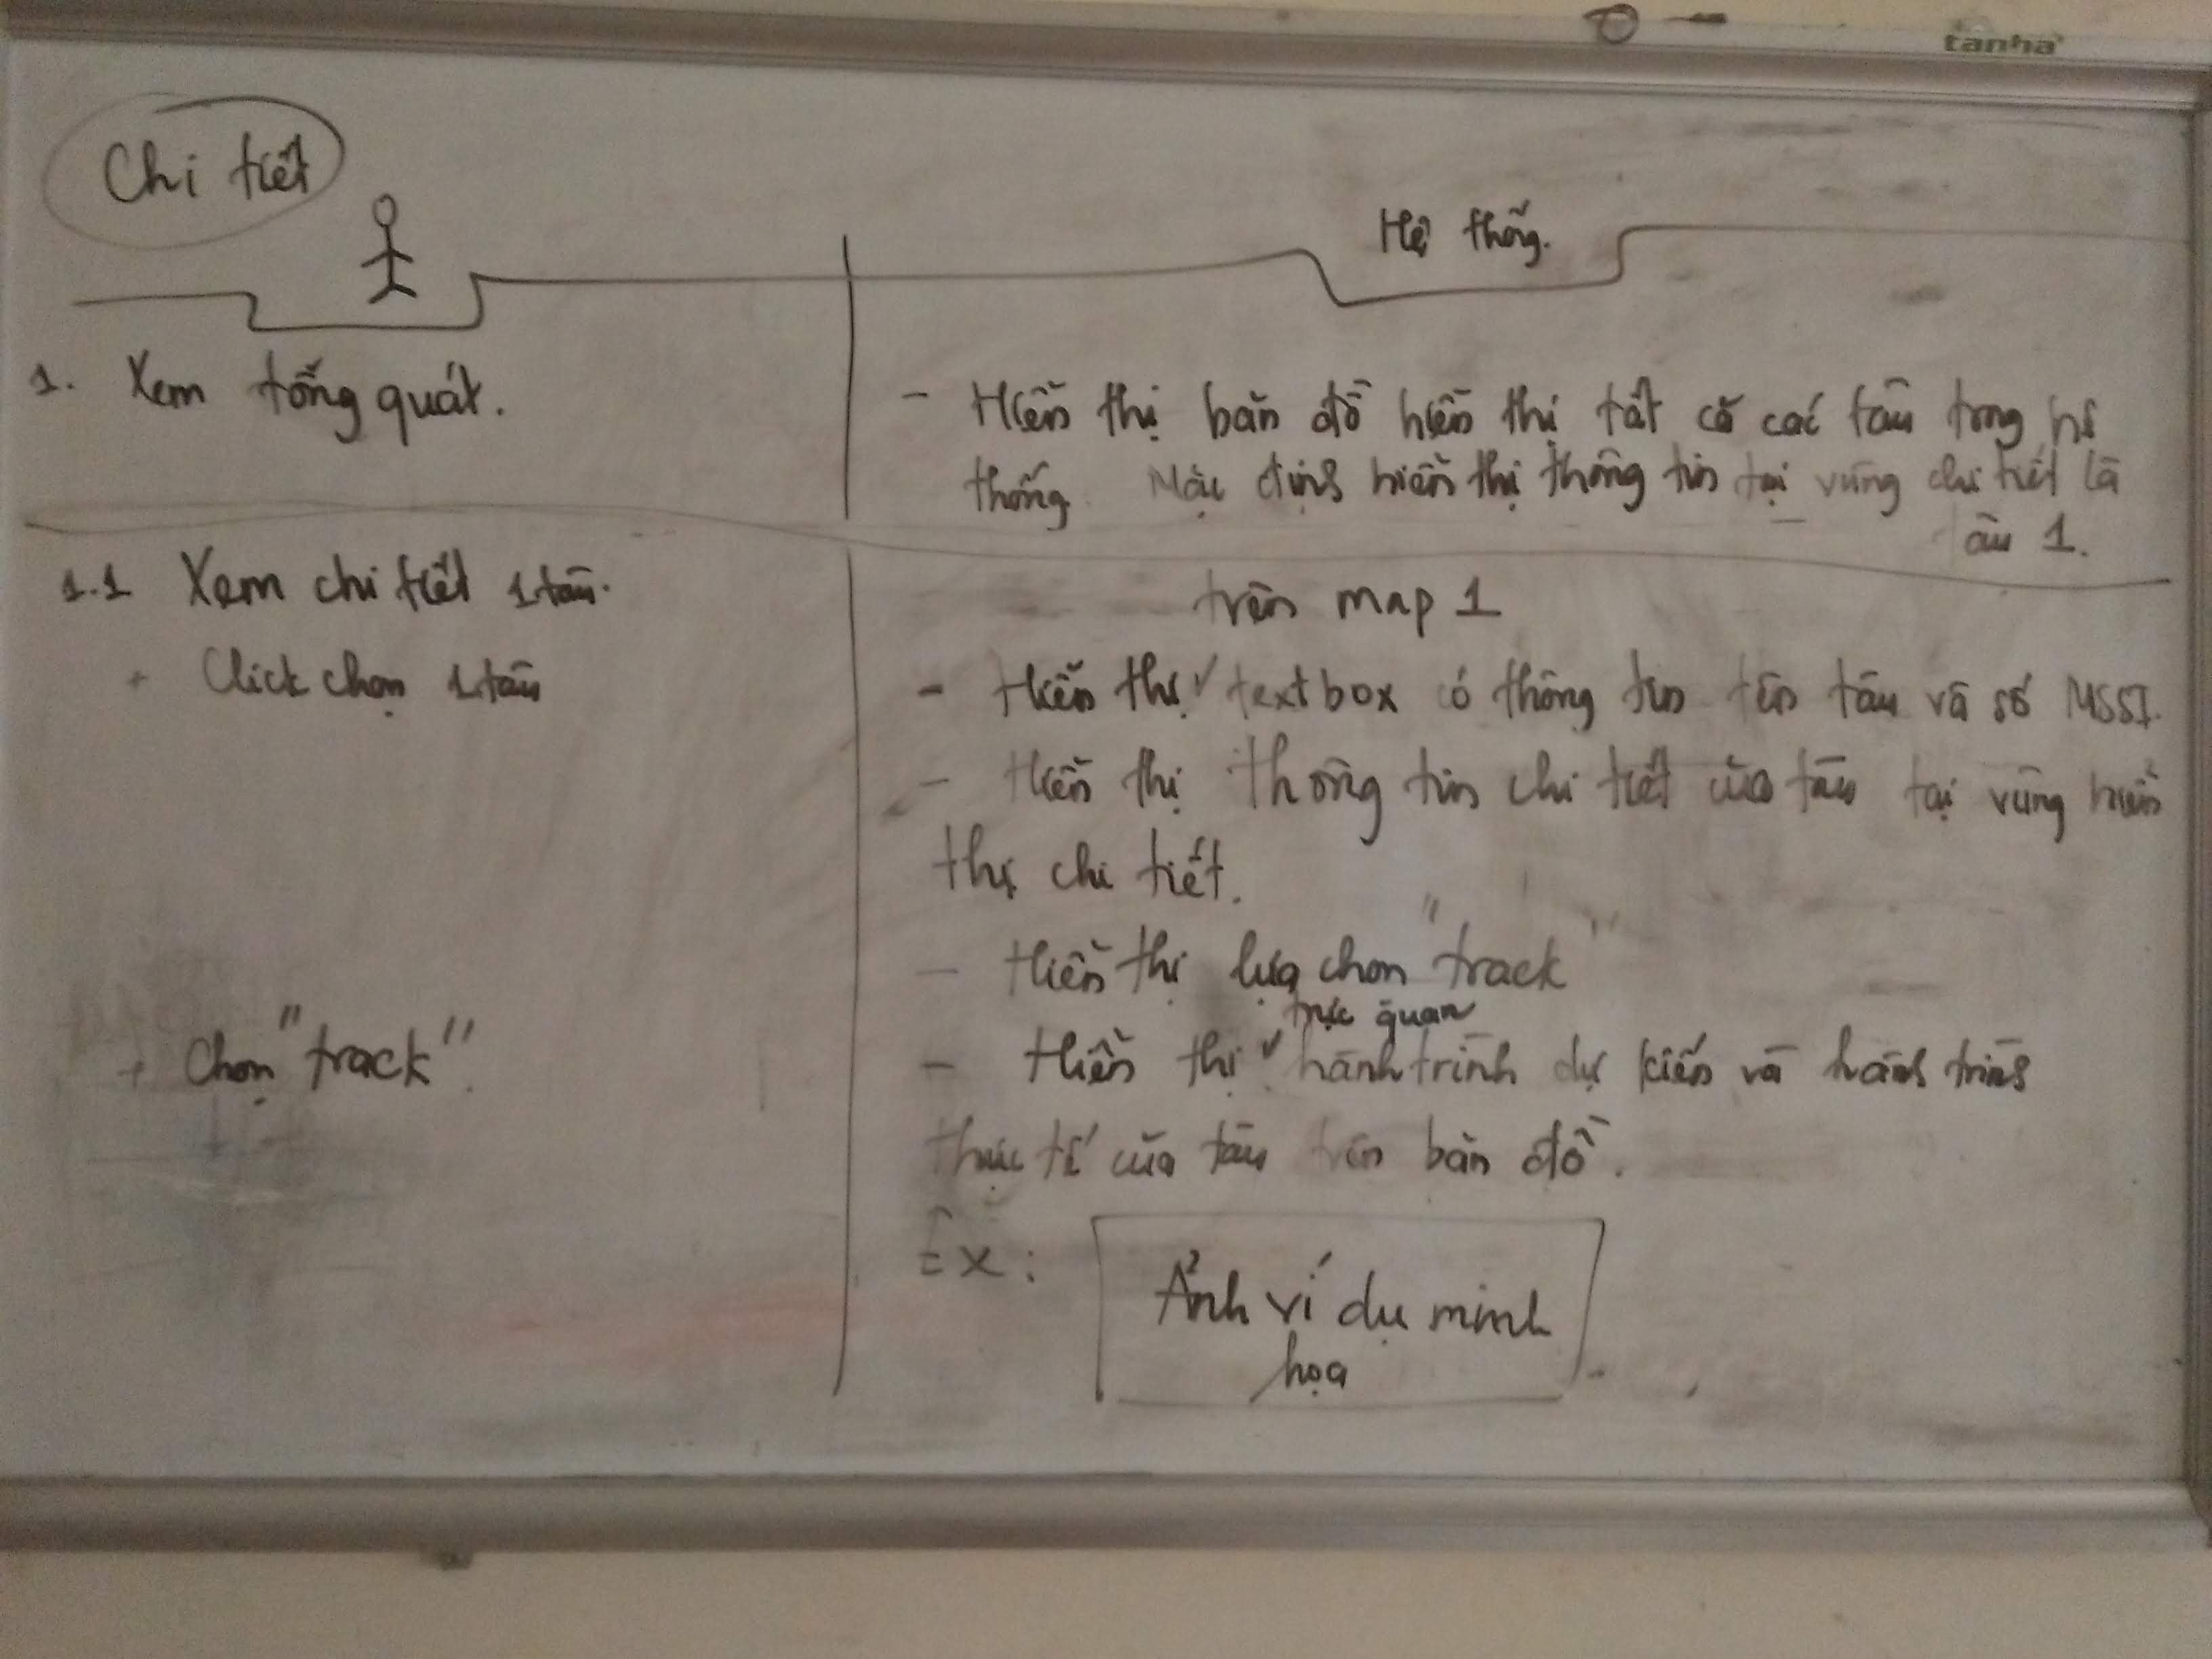 tânhà
Chi tiết
Hệ thống.
1. Xem tổng quát.
- Hiển thị bản đồ hiển thị tất cả các tàu trong hệ
thống. Mặc định hiển thị thông tin tại vùng chi tiết là
tàu 1.
1.1 Xem chi tiết 1 tàu.
+ Click chọn 1 tàu
trên map 1
- Hiển thị ✓ textbox có thông tin tên tàu và số MSSI.
- Hiển thị thông tin chi tiết của tàu tại vùng hiển
thị chi tiết.
- Hiển thị lựa chọn "track"
+ Chọn "track".
trực quan
- Hiển thị ✓ hành trình dự kiến và hành trình
thực tế của tàu trên bản đồ.
Ex:
Ảnh ví dụ minh
họa